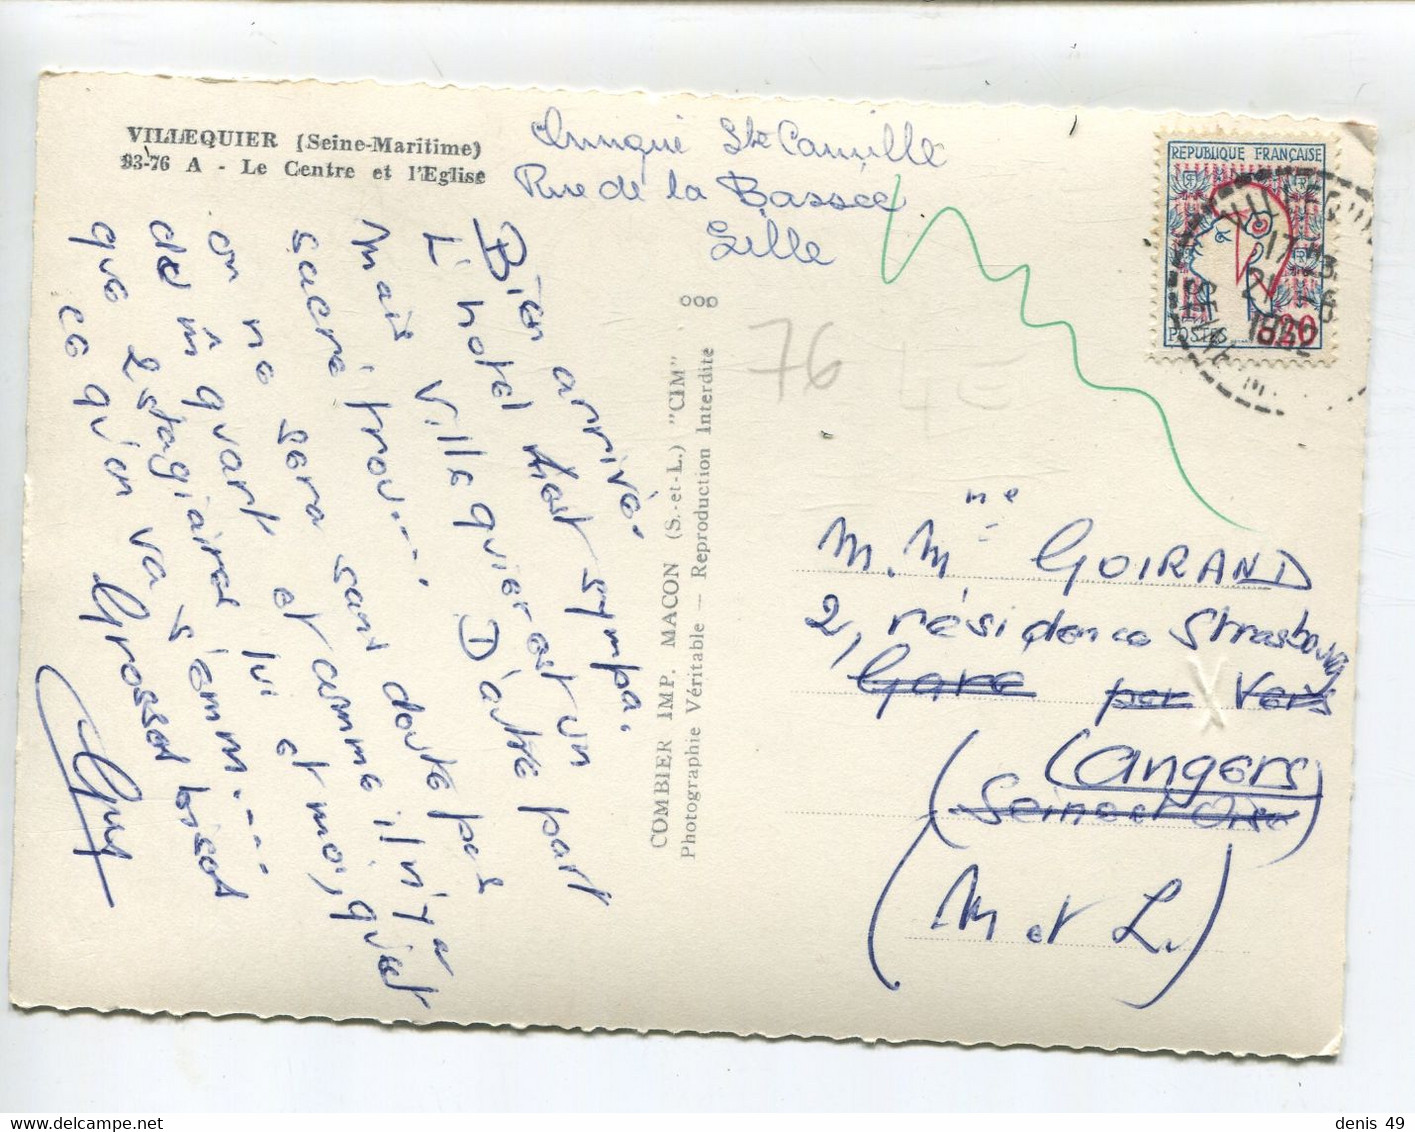 VILLEQUIER (Seine-Maritime)
93-76 A - Le Centre et l'Eglise
Ste Camille
Rue de la Bassée
Lille
Bien arrivé.
L'hotel est sympa.
Mais Villequier est un
sacré trou.... D'autre part
on ne sera sans doute pas
de m̂ quart et comme il n'y a
que 2 stagiaires lui et moi, qu'est
ce qu'on va s'emm.....
Grosses bises
Guy
COMBIER IMP. MACON (S.-et-L.) "CIM"
Photographie Véritable — Reproduction Interdite
76
REPUBLIQUE FRANÇAISE
POSTES
0,20
VILLEQUIER
17 H
21
SEINE M
M. Mme GOIRAND
2, résidence Strasbourg
Gare par Vers
(Angers)
(Seine et Oise
(M et L.)
denis 49